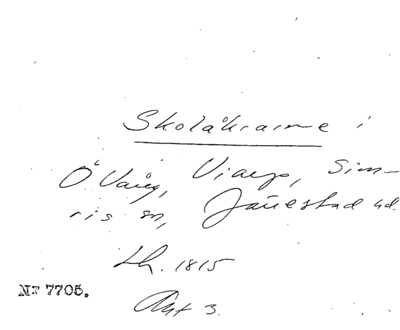 Skolåkrarne i
Ö Vång, Viarp, Sim-
ris sn, Järrestad hd.
Lh. 1815
Akt 3.
Nr 7705.